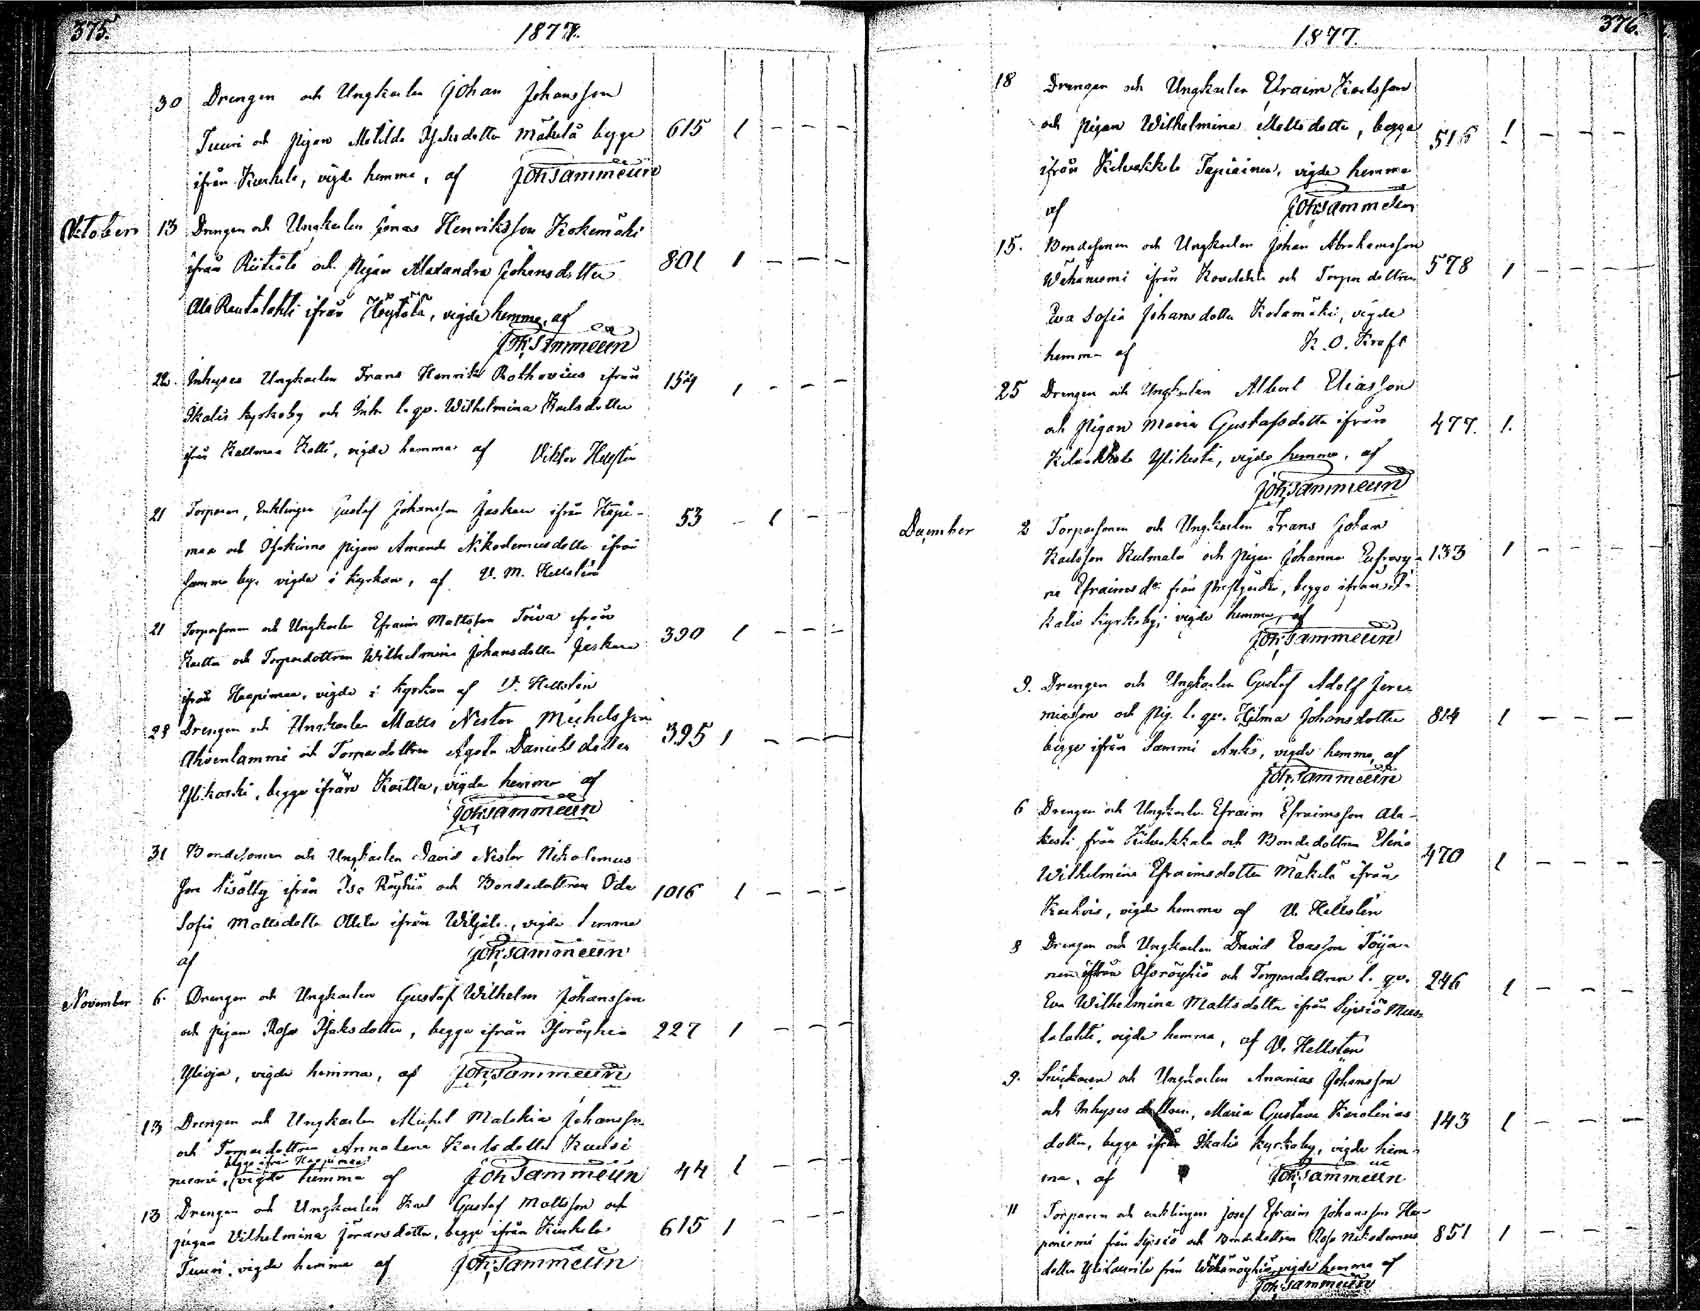 375.
1877.
30 Drengen och Ungkarlen Johan Johansson
Tuuri och pigan Matilda Isaksdotter Mäkelä begge 615 1 - - -
ifrån Kurkela, vigde hemma, af Joh. Tammelin
Oktober 13 Drengen och Ungkarlen Jonas Henriksson Kokemäki
ifrån Riitiala och Pigan Alexandra Johansdotter 801 1 - - -
Ala Rautalahti ifrån Höytölä, vigde hemma, af
Joh. Tammelin
22. Inhyses Ungkarlen Frans Henrik Rothovius ifrån 154 1 - - -
Ikalis kyrkoby och Inh. l. qv. Wilhelmina Karlsdotter
ifrån Kallmaa Kalli, vigde hemma af Viktor Hellstén
21 Torparen, Enklingen Gustaf Johansson Jaskara ifrån Haapi- 53 - 1 - -
maa och pigan Amanda Nikodemusdotter ifrån
samma by, vigde i kyrkan, af V. M. Hellstén
21 Torparsonen och Ungkarlen Efraim Mattsson Toiva ifrån 390 1 - - -
Karttu och Torparedottren Wilhelmina Johansdotter Jaskara
ifrån Haapimaa, vigde i kyrkan af V. Hellstén
28 Drengen och Ungkarlen Matts Nestor Michelsson
Ahvenlammi och Torparedottren Agata Danielsdotter 395 1 - - -
Ylikoski, begge ifrån Kartttu, vigde hemma af
Joh. Tammelin
31 Bondesonen och Ungkarlen David Nestor Nikodemus
son Sisättö ifrån Iso Röyhiö och Bondedottren Oda 1016 1 - - -
Sofia Mattsdotter Ollila ifrån Wiljala, vigde hemma
af Joh. Tammelin
November 6. Drengen och Ungkarlen Gustaf Wilhelm Johansson
och pigan Rosa Isaksdotter, begge ifrån Isoröyhiö 227 1 - - -
Ylioja, vigde hemma, af Joh. Tammelin
13 Drengen och Ungkarlen Michel Malakias Johansson
och Torparedottren Annalena Karlsdotter Kuusi
begge ifrån Haapimaa
niemi, vigde hemma af Joh. Tammelin 44 1 - - -
13 Drengen och Ungkarlen Karl Gustaf Mattsson och
pigan Vilhelmina Jöransdotter, begge ifrån Kurkela 615 1 - - -
Tuuri, vigde hemma af Joh. Tammelin
376.
1877.
18 Drengen och Ungkarlen Efraim Karlsson
och pigan Wilhelmina Mattsdotter, begge 516 1 - - -
ifrån Kilvakkala Tapiainen, vigde hemma
af Joh. Tammelin
15. Bondesonen och Ungkarlen Johan Abrahamsson
Wähäniemi ifrån Kovelahti och Torparedottren 578 1 - - -
Eva Sofia Johansdotter Kotamäki, vigde
hemma af K. O. Kraft
25 Drengen och Ungkarlen Albert Eliasson
och pigan Maria Gustafsdotter ifrån 477. 1.
Kilvakkala Ylikesti, vigde hemma, af
Joh. Tammelin
December 2 Torparsonen och Ungkarlen Frans Johan
Karlsson Kulmala och pigan Johanna Eufrosy- 133 1 - - -
ne Efraimsdr. från Prestgården, begge ifrån I-
kalis kyrkoby, vigde hemma, af
Joh. Tammelin
9. Drengen och Ungkarlen Gustaf Adolf Jere-
miasson och Pig. l. qv. Hilma Johansdotter 814 1 - - -
begge ifrån Sammi Antti, vigde hemma, af
Joh. Tammelin
6 Drengen och Ungkarlen Efraim Efraimsson Ala-
kesti från Kilvakkala och Bondedottren Elina 470 1 - - -
Wilhelmina Efraimsdotter Mäkelä ifrån
Karhois, vigde hemma af V. Hellstén
8 Drengen och Ungkarlen David Evasson Töijä-
nen ifrån Isoröyhiö och Torparedottren l. qv. 246 1 - - -
Eva Wilhelmina Mattsdotter ifrån Sipsiö Mus-
talahti, vigde hemma, af V. Hellstén
9. och Ungkarlen Ananias Johansson
och Inhyses dottren, Maria Gustava Karolinas 143 1 - - -
dotter, begge ifrån Ikalis kyrkoby, vigde hem-
ma, af Joh. Tammelin
11 Torparen och enklingen Josef Efraim Johansson Ha-
paniemi från Sipsiö och Bondedottren Rosa Nikodemus 851 1 - - -
dotter Ylitaurila från Wähäröyhiö, vigde hemma af
Joh. Tammelin